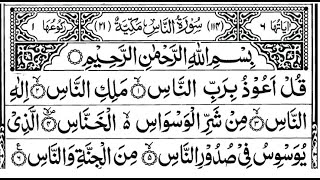 اٰیَاتُهَا ٦ (١١٤) سُوْرَةُ النَّاسِ مَكِّیَّةٌ (٢١) رُكُوْعُهَا ١
بِسْمِ اللّٰهِ الرَّحْمٰنِ الرَّحِیْمِ
قُلْ اَعُوْذُ بِرَبِّ النَّاسِ ۙ١ مَلِكِ النَّاسِ ۙ٢ اِلٰهِ
النَّاسِ ۙ٣ مِنْ شَرِّ الْوَسْوَاسِ ٥ۙ الْخَنَّاسِ ۙ٤ الَّذِیْ
یُوَسْوِسُ فِیْ صُدُوْرِ النَّاسِ ۙ٥ مِنَ الْجِنَّةِ وَالنَّاسِ ٦